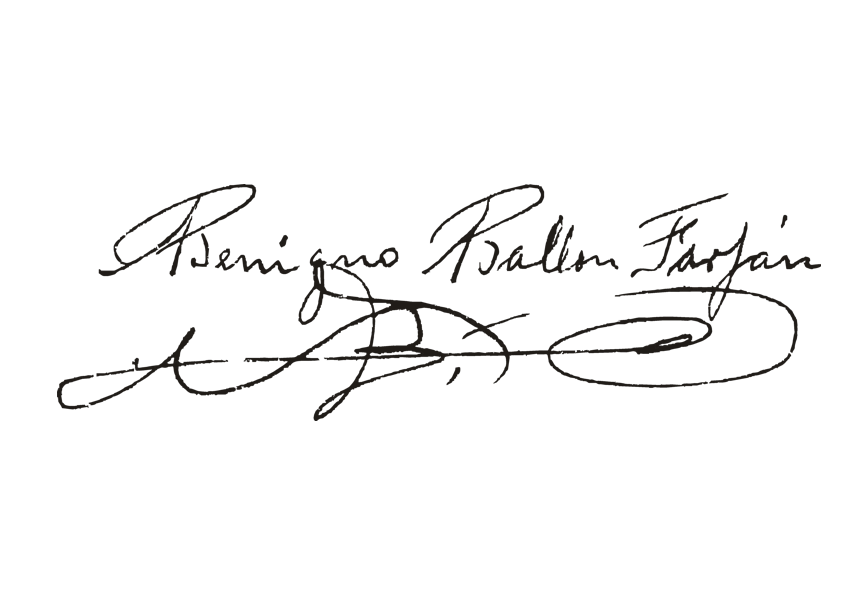 Benigno Ballon Farfán